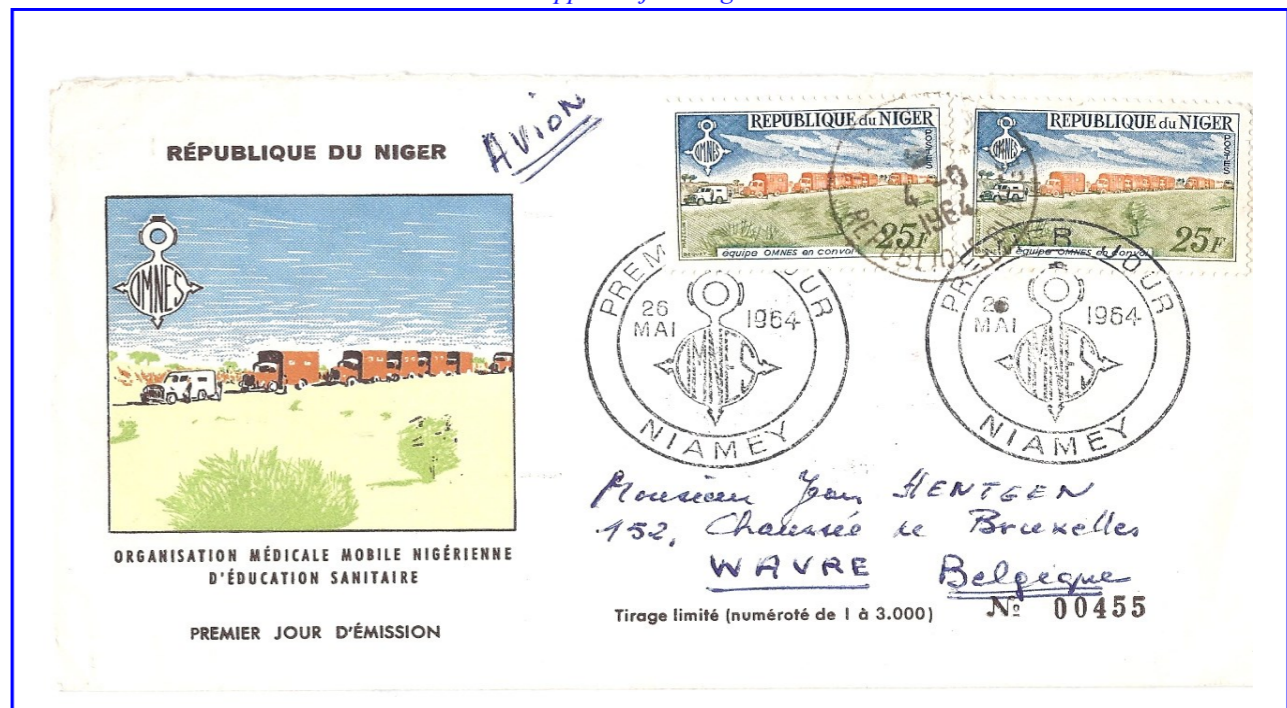 RÉPUBLIQUE DU NIGER
Avion
OMNES
ORGANISATION MÉDICALE MOBILE NIGÉRIENNE
D'ÉDUCATION SANITAIRE
PREMIER JOUR D'ÉMISSION
REPUBLIQUE du NIGER
POSTES
OMNES
25F
équipe OMNES en convoi
REPUBLIQUE du NIGER
POSTES
OMNES
25F
équipe OMNES en convoi
1964
REPUBLIQUE DU
PREMIER JOUR
26 MAI 1964
OMNES
NIAMEY
PREMIER JOUR
26 MAI 1964
OMNES
NIAMEY
Monsieur Jean HENTGEN
152, Chaussée de Bruxelles
WAVRE Belgique
Tirage limité (numéroté de 1 à 3.000) Nº 00455